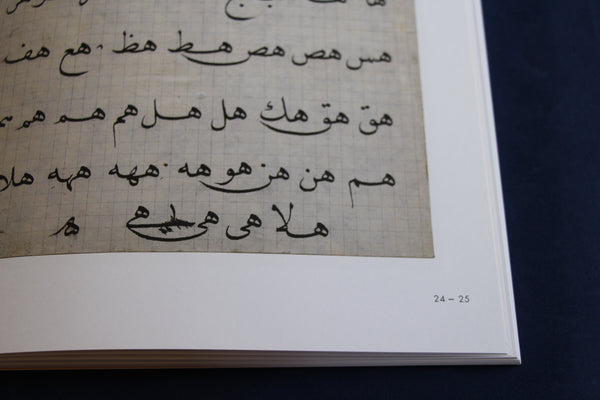 هس هص هص هط هط هظ هع هف
هق هق هك هل هل هم هم هم
هم هن هن هو هه ههه ههه هلا
هلا هى هى هى
24 – 25